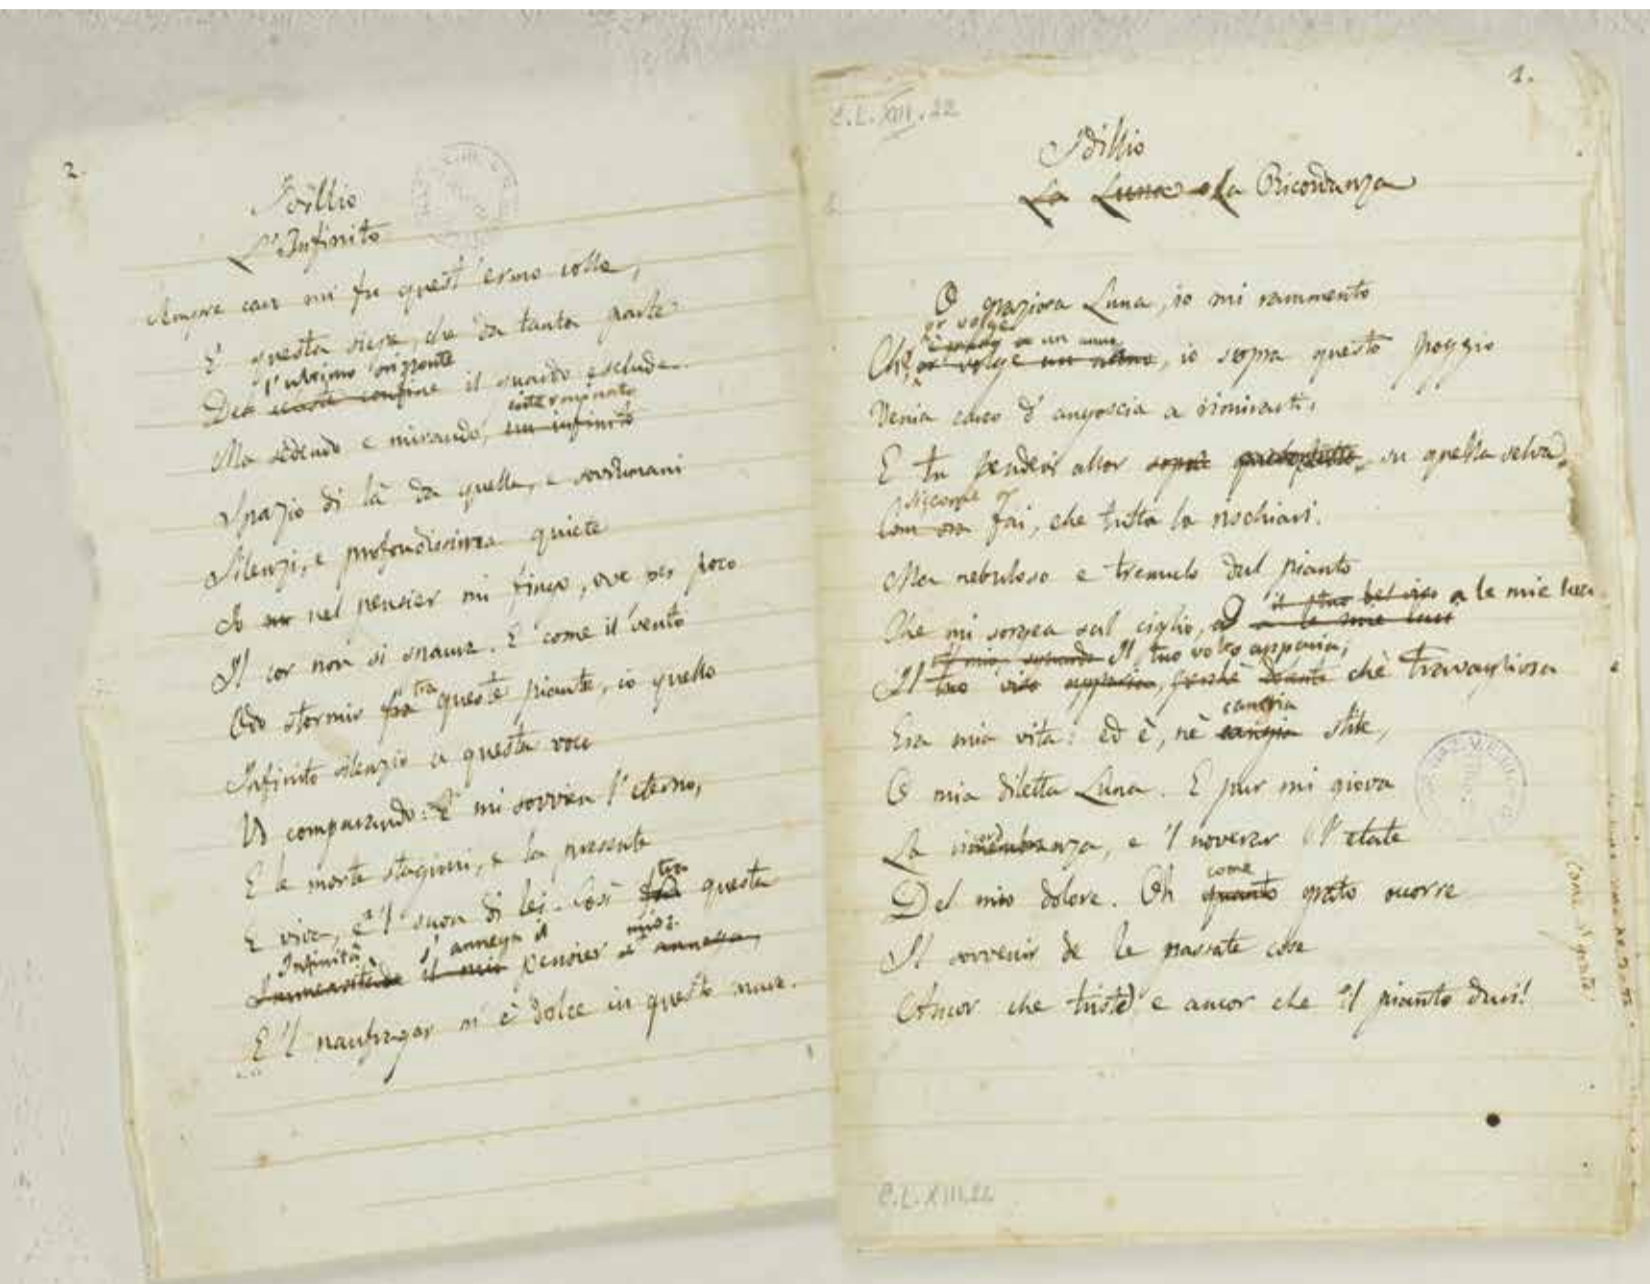 2.
Idillio
L'Infinito
Sempre caro mi fu quest'ermo colle,
E questa siepe, che da tanta parte
l'ultimo orizzonte
Del celeste confine il guardo esclude.
interminato
Ma sedendo e mirando, un infinito
Spazio di là da quella, e sovrumani
Silenzi, e profondissima quiete
Io nel pensier mi fingo, ove per poco
Il cor non si spaura. E come il vento
tra
Odo stormir fra queste piante, io quello
Infinito silenzio a questa voce
Vo comparando: E mi sovvien l'eterno,
E le morte stagioni, e la presente
tra
E viva, e 'l suon di lei. Così fra questa
Infinità s'annega il mio
Immensitade il mio pensier s'annega,
E 'l naufragar m'è dolce in questo mare.
1.
C.L.XIII.22
Idillio
La Luna o La Ricordanza
O graziosa Luna, io mi rammento
or volge
è un anno
Che, or volge un anno, io sopra questo poggio
Venia carco d'angoscia a rimirarti,
E tu pendevi allor sopra su quella selva,
Siccome or
Com ora fai, che tutta la rischiari.
Ma nebuloso e tremulo dal pianto
il tuo bel viso a le mie luci
Che mi sorgea sul ciglio, a le mie luci
Il tuo volto apparia,
Il tuo viso apparia, perchè chè travagliosa
cangia
Era mia vita: ed è, nè cangia stile,
O mia diletta Luna. E pur mi giova
La ricordanza, e 'l noverar l'etate
come
Del mio dolore. Oh quanto grato occorre
Il sovvenir de le passate cose
Ancor che triste, e ancor che il pianto duri!
C.L.XIII.22